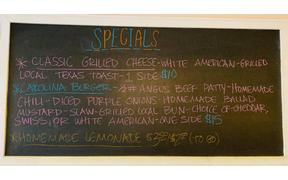 SPECIALS
* CLASSIC GRILLED CHEESE-WHITE AMERICAN-GRILLED
LOCAL TEXAS TOAST-1 SIDE $10
* CAROLINA BURGER- ANGUS BEEF PATTY-HOMEMADE
CHILI-DICED PURPLE ONIONS-HOMEMADE
MUSTARD-SLAW-GRILLED LOCAL BUN-CHOICE OF-CHEDDAR,
SWISS, OR WHITE AMERICAN-ONE SIDE $15
* HOMEMADE LEMONADE (TO GO)